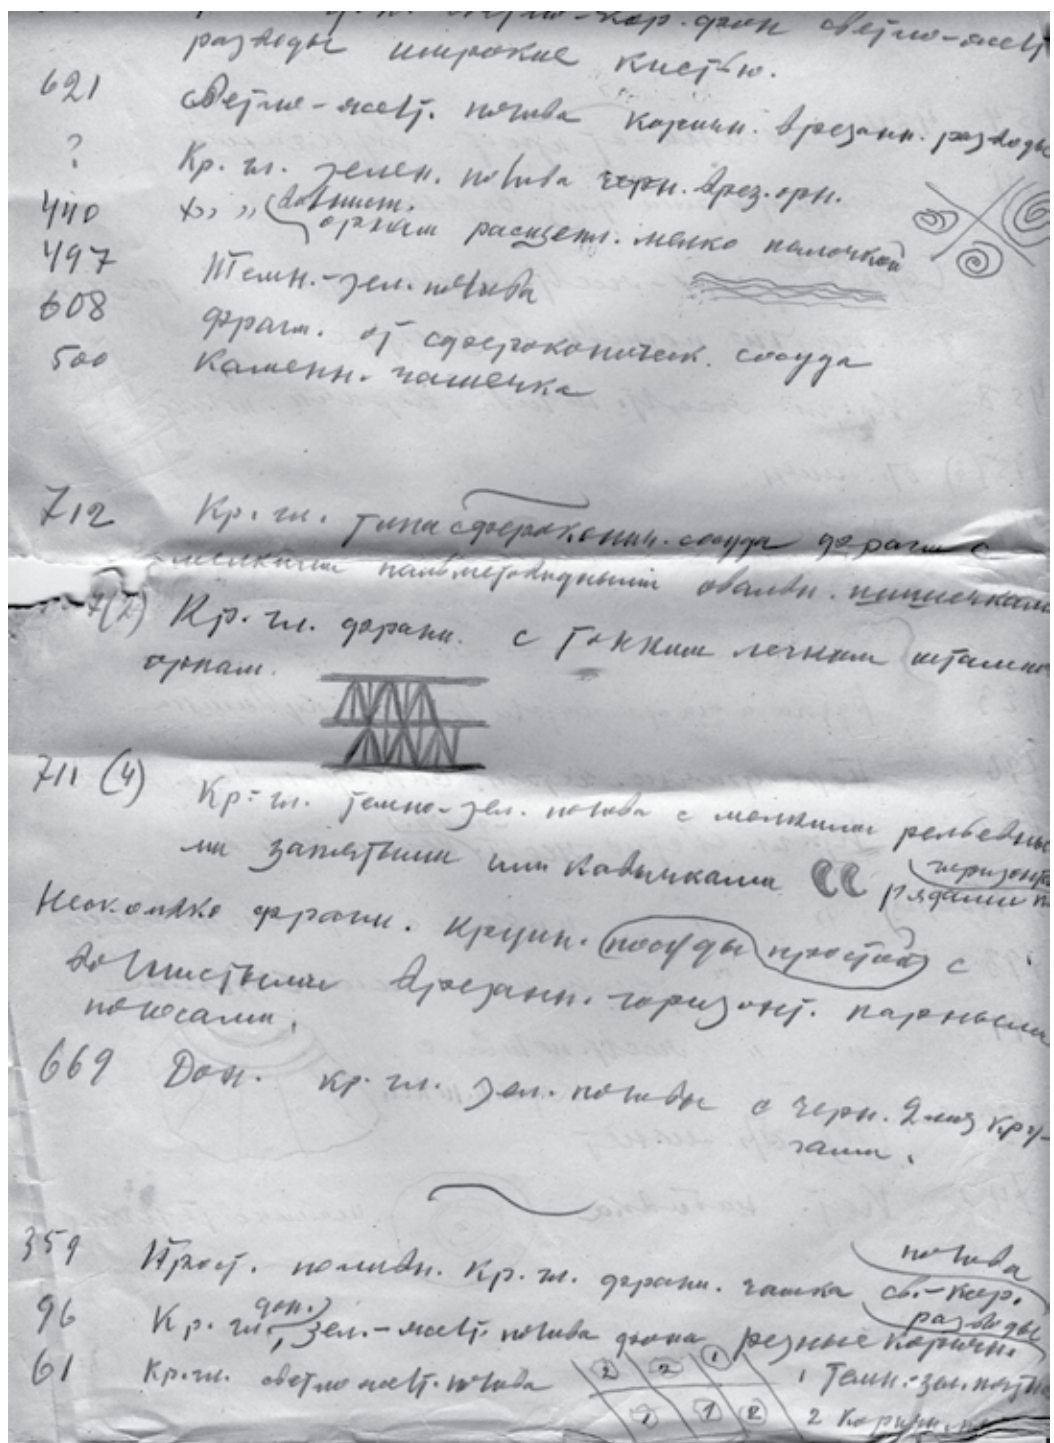 светло-кор. фон светло-желт.
разводы широкие кистью.
621 светло-желт. полива коричн. врезанн. разводы
? Кр. гл. зелен. полива черн. врез. орн.
440 " " волнист.
орнам расщепл. мелко палочкой
497 Темн.-зел. полива
608 фрагм. от сфероконическ. сосуда
500 Каменн. чашечка
712 Кр. гл. типа сфероконич. сосуда фрагм с
мелкими пальметовидными овальн. шишечками
7(2) Кр. гл. фрагм. с тонким легким штампо
орнам.
711 (4) Кр. гл. темно-зел. полива с мелкими рельефны
ми запятыми или кавычками рядами
горизонт
Несколько фрагм. крупн. посуды простой с
волнистыми врезанн. горизонт. парными
полосами.
669 Дон. кр. гл. зел. поливы с черн. 2-мя кру-
гами.
359 Прост. поливн. кр. гл. фрагм. чашка полива
св.-кор.
разводы
96 Кр. гл. дон. зел.-желт. полива фона резные коричн.
61 Кр. гл. светло желт. полива
2 2 1
1 1 2
1 Темн.-зел.
2 Коричн.